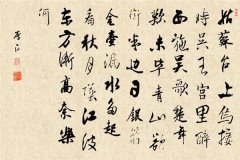 姑蘇臺上烏棲
時吳王宮里醉
西施吳歌楚舞
歡未畢青山欲
銜半邊日銀箭
金壺漏水多起
看秋月墜江波
東方漸高奈樂
何